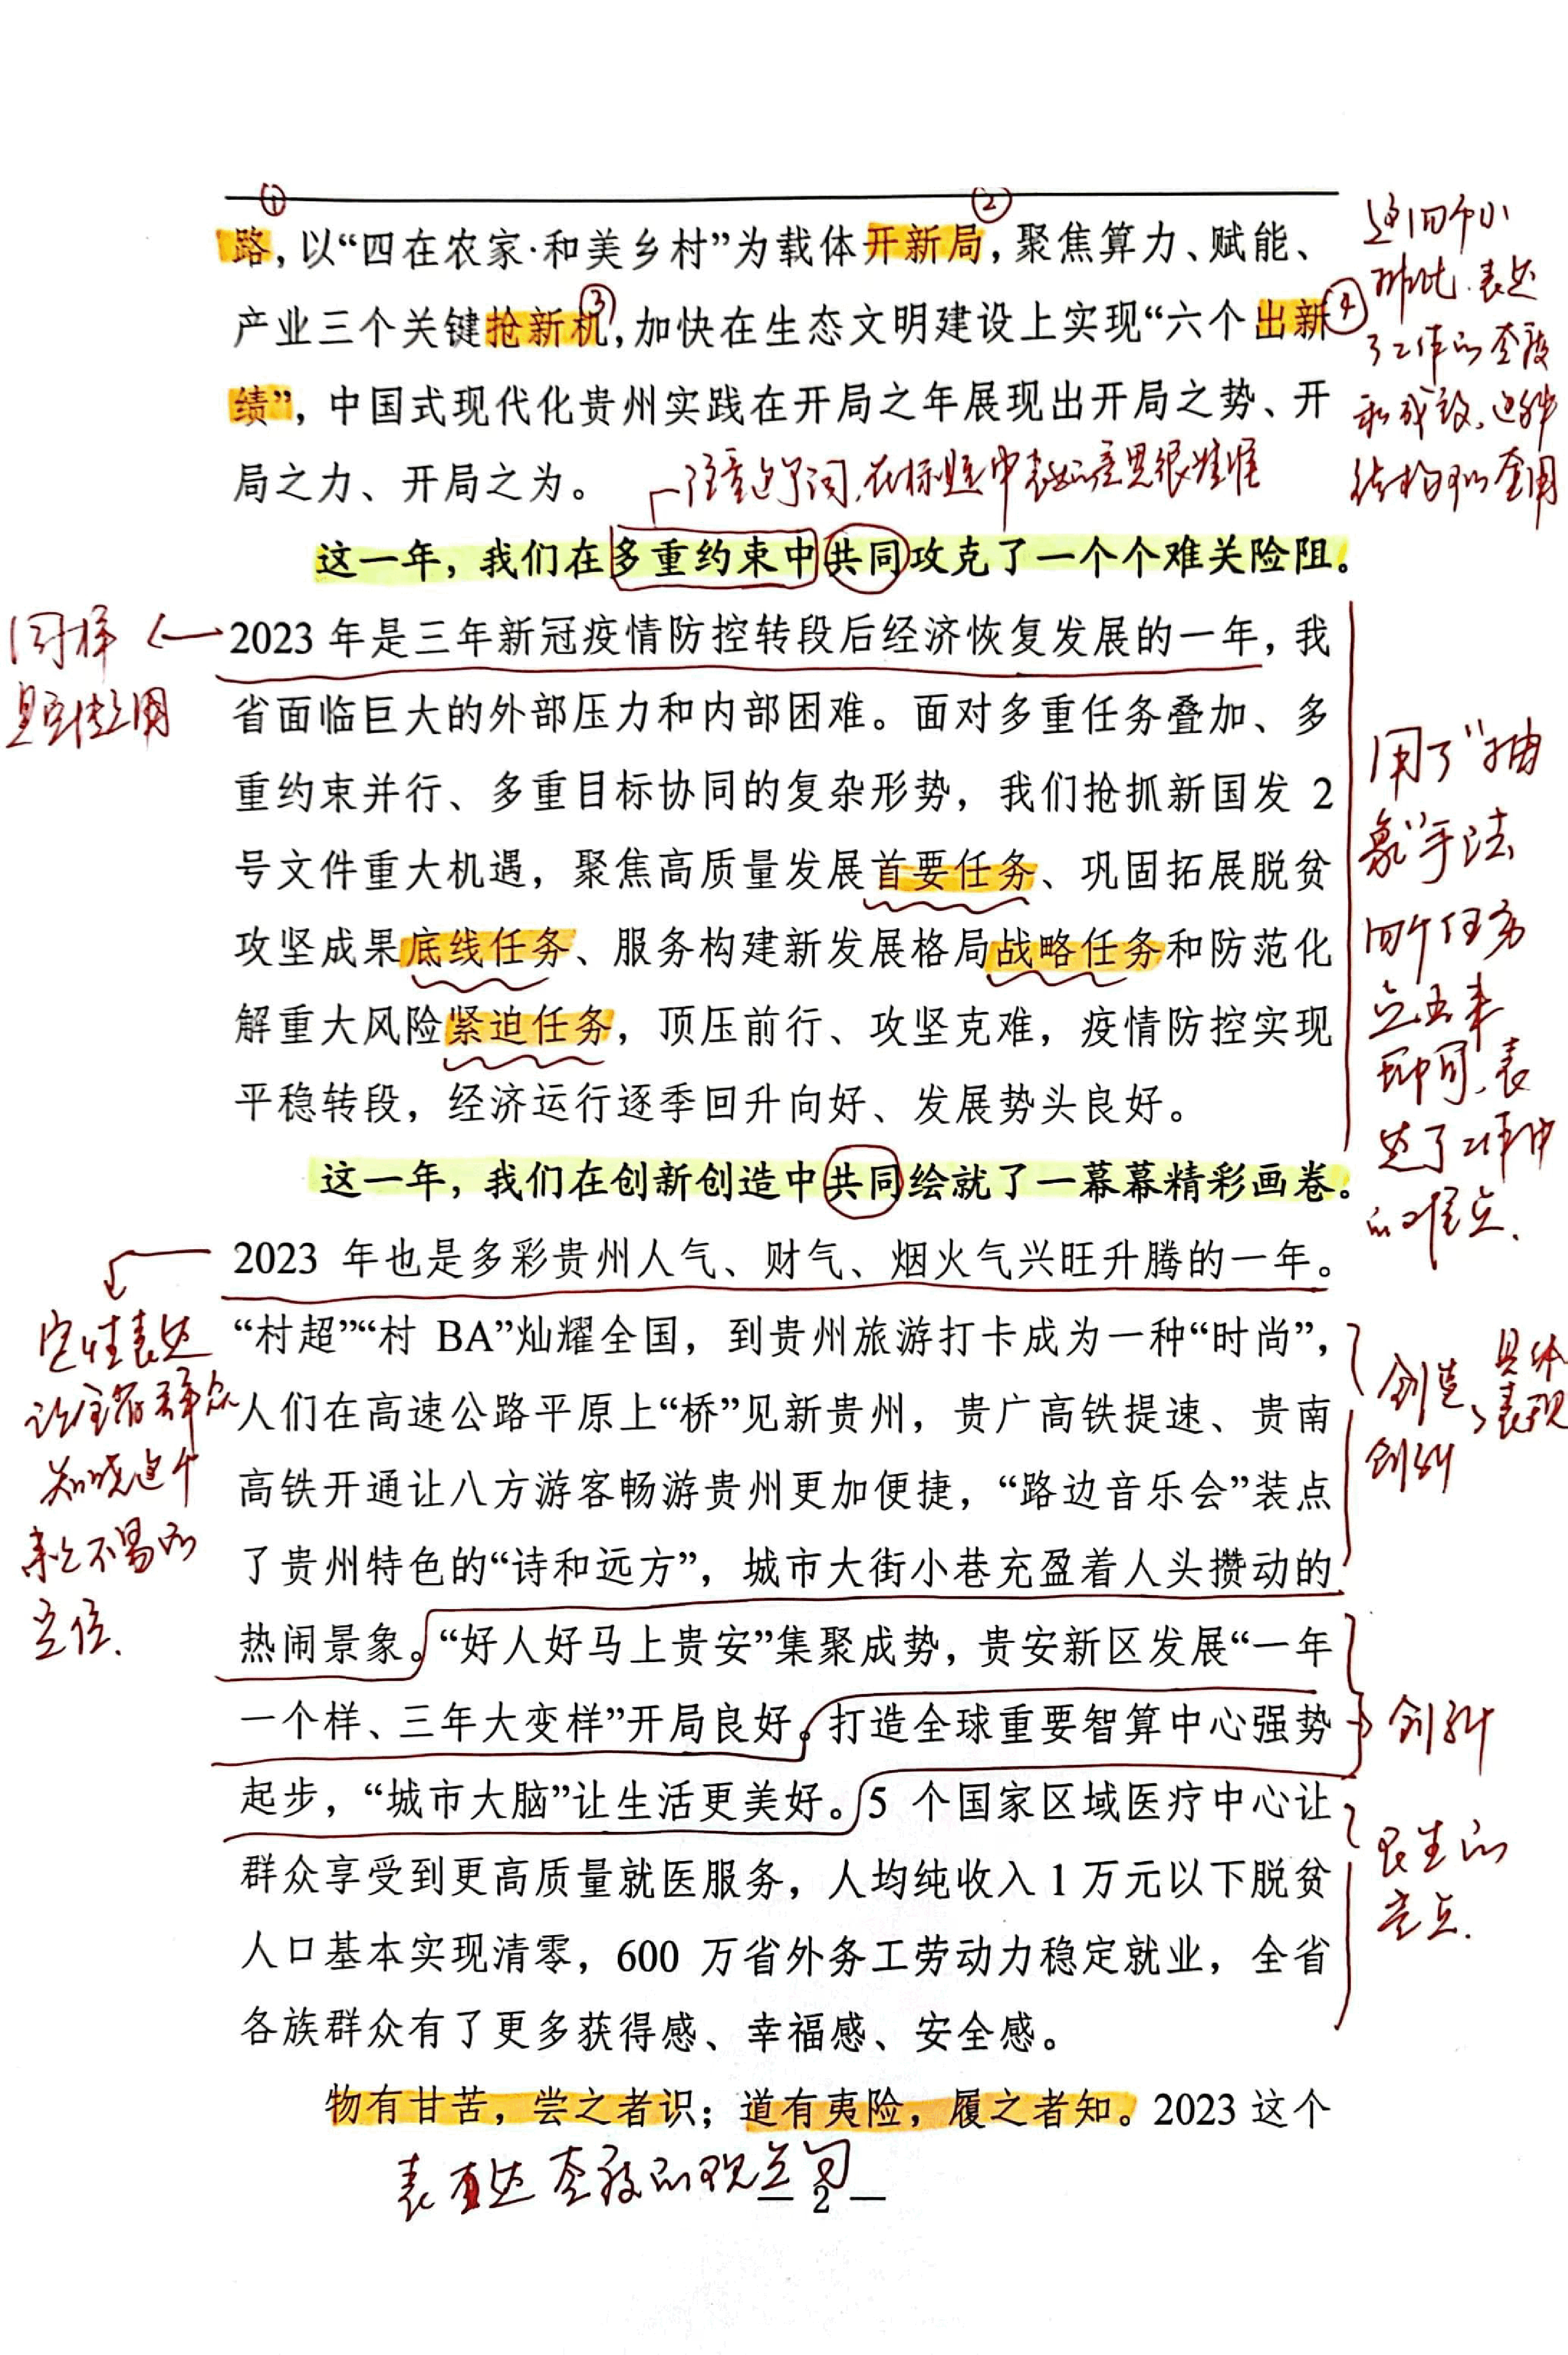 ①
②
路，以“四在农家·和美乡村”为载体开新局，聚焦算力、赋能、
③
④
产业三个关键抢新机，加快在生态文明建设上实现“六个出新
绩”，中国式现代化贵州实践在开局之年展现出开局之势、开
局之力、开局之为。
这四个小
排比，表达
了工作的
和成效，这种
结构可以套用
在标题中表达意思很准确
这一年，我们在多重约束中共同攻克了一个个难关险阻。
同样
是定性用
2023 年是三年新冠疫情防控转段后经济恢复发展的一年，我
省面临巨大的外部压力和内部困难。面对多重任务叠加、多
重约束并行、多重目标协同的复杂形势，我们抢抓新国发 2
号文件重大机遇，聚焦高质量发展首要任务、巩固拓展脱贫
攻坚成果底线任务、服务构建新发展格局战略任务和防范化
解重大风险紧迫任务，顶压前行、攻坚克难，疫情防控实现
平稳转段，经济运行逐季回升向好、发展势头良好。
用了“抽
象”手法
四个任务
表
达了工作中
的难点.
这一年，我们在创新创造中共同绘就了一幕幕精彩画卷。
2023 年也是多彩贵州人气、财气、烟火气兴旺升腾的一年。
“村超”“村 BA”灿耀全国，到贵州旅游打卡成为一种“时尚”，
人们在高速公路平原上“桥”见新贵州，贵广高铁提速、贵南
高铁开通让八方游客畅游贵州更加便捷，“路边音乐会”装点
了贵州特色的“诗和远方”，城市大街小巷充盈着人头攒动的
热闹景象。“好人好马上贵安”集聚成势，贵安新区发展“一年
一个样、三年大变样”开局良好。打造全球重要智算中心强势
起步，“城市大脑”让生活更美好。5 个国家区域医疗中心让
群众享受到更高质量就医服务，人均纯收入 1 万元以下脱贫
人口基本实现清零，600 万省外务工劳动力稳定就业，全省
各族群众有了更多获得感、幸福感、安全感。
定性表达
让全省群众
知晓这个
来之不易的
定位.
创造、
创新
具体
表现
创新
民生的
亮点.
物有甘苦，尝之者识；道有夷险，履之者知。2023 这个
— 2 —